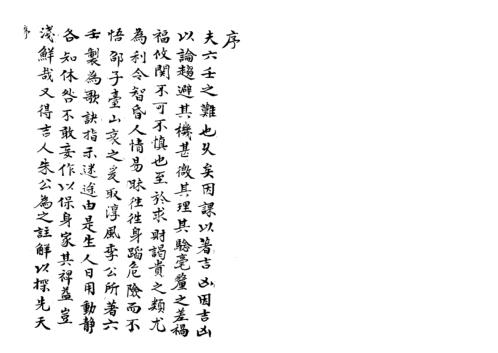 序
夫六壬之難也久矣因課以著吉凶因吉凶
以論趨避其機甚微其理其騐毫釐之差禍
福攸関不可不慎也至於求財謁貴之類尤
為利令智昏人情易昧往徃身蹈危險而不
悟邵子臺山哀之爰取淳風李公所著六
壬製為歌訣指示迷途由是生人日用動静
各知休咎不敢妄作以保身家其裨益豈
淺鮮哉又得吉人朱公為之註解以探先天
序